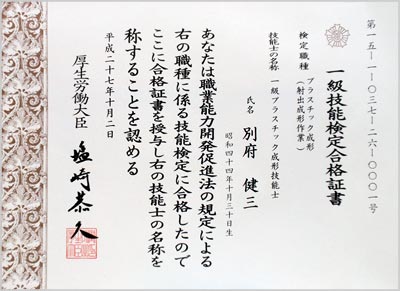 第一五-一-〇三七-二六-〇〇〇一号
一級技能検定合格証書
検定職種
プラスチック成形
（射出成形作業）
技能士の名称
一級プラスチック成形技能士
氏名
別府 健三
昭和四十四年十月三十日生
あなたは職業能力開発促進法の規定による
右の職種に係る技能検定に合格したので
ここに合格証書を授与し右の技能士の名称を
称することを認める
平成二十七年十月二日
厚生労働大臣
塩崎恭久